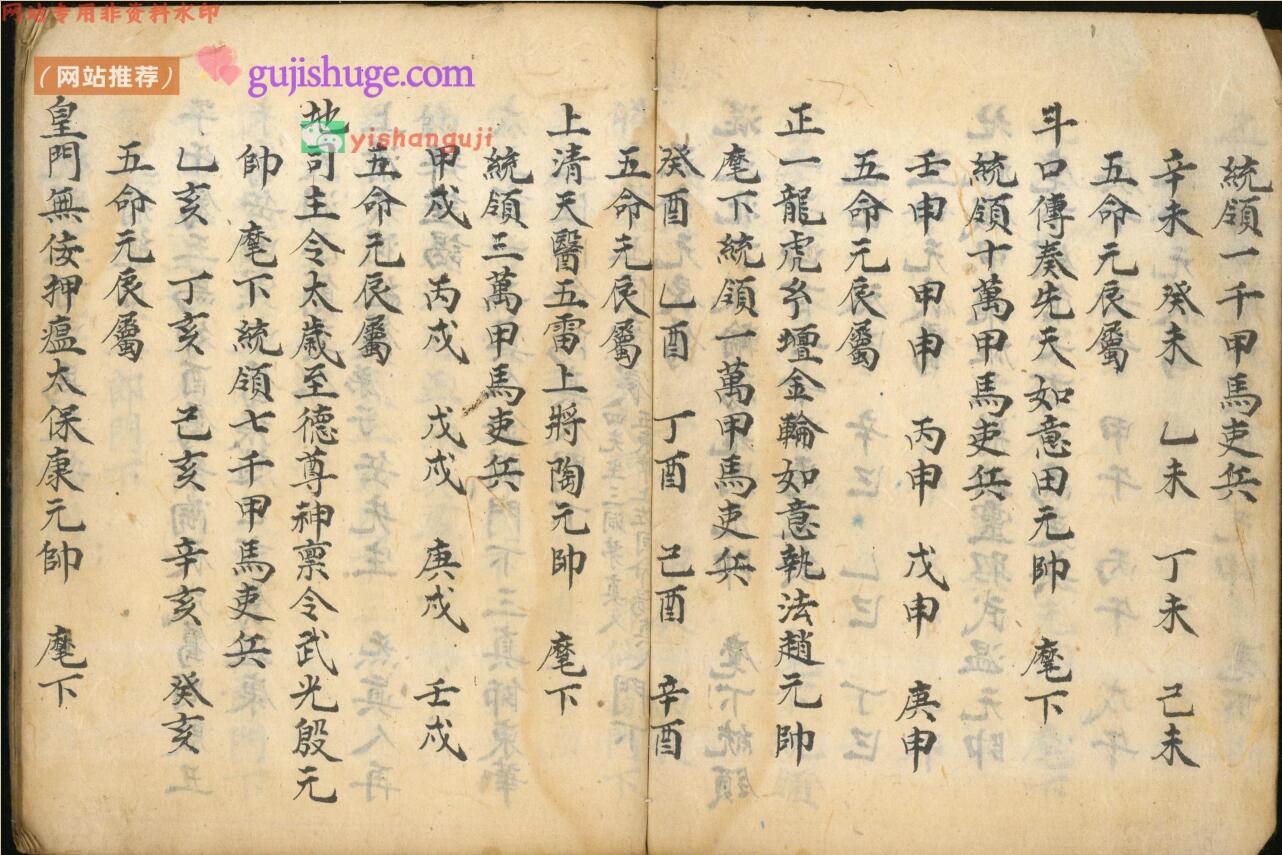 网站专用非资料水印
（网站推荐）
gujishuge.com
yishanguji
統領一千甲馬吏兵
辛未 癸未 乙未 丁未 己未
五命元辰屬
斗口傳奏先天如意田元帥 麾下
統領十萬甲馬吏兵
壬申 甲申 丙申 戊申 庚申
五命元辰屬
正一龍虎玄壇金輪如意執法趙元帥
麾下統領一萬甲馬吏兵
癸酉 乙酉 丁酉 己酉 辛酉
五命元辰屬
上清天醫五雷上將陶元帥 麾下
統領三萬甲馬吏兵
甲戌 丙戌 戊戌 庚戌 壬戌
五命元辰屬
地司主令太歲至德尊神禀令武光殷元
帥 麾下統領七千甲馬吏兵
乙亥 丁亥 己亥 辛亥 癸亥
五命元辰屬
皇門無佞押瘟太保康元帥 麾下